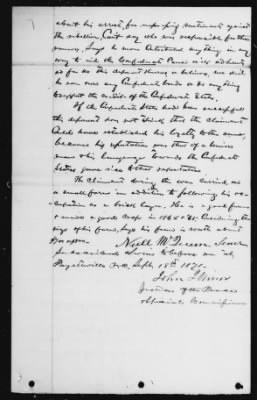 about his arrest, for expressing sentiments against
the rebellion, Can't say who was responsible for these
rumors, Says he never contributed anything in any
way to aid the Confederate
as far as this deponent knows or believes, nor did
he ever own any Confederate bonds or do any thing
to support the credit of the Confederate States.
If the Confederate States had been successful
this deponent does not think that the claimant
could have established his loyalty to the same,
because his reputation was that of a Union
man & his language towards the Confederate
States gave rise to that reputation
The Claimant during the war carried on
a small farm in addition to following his
as a brick layer. He is a good farmer
& made a good crop in 1864 & 65. Considering the
size of his farm, Says his farm is worth about
Neill McQueen Senr
Sworn to before me at
Fayetteville N.C. Sept. 18th 1871.
John
Justice of the Peace